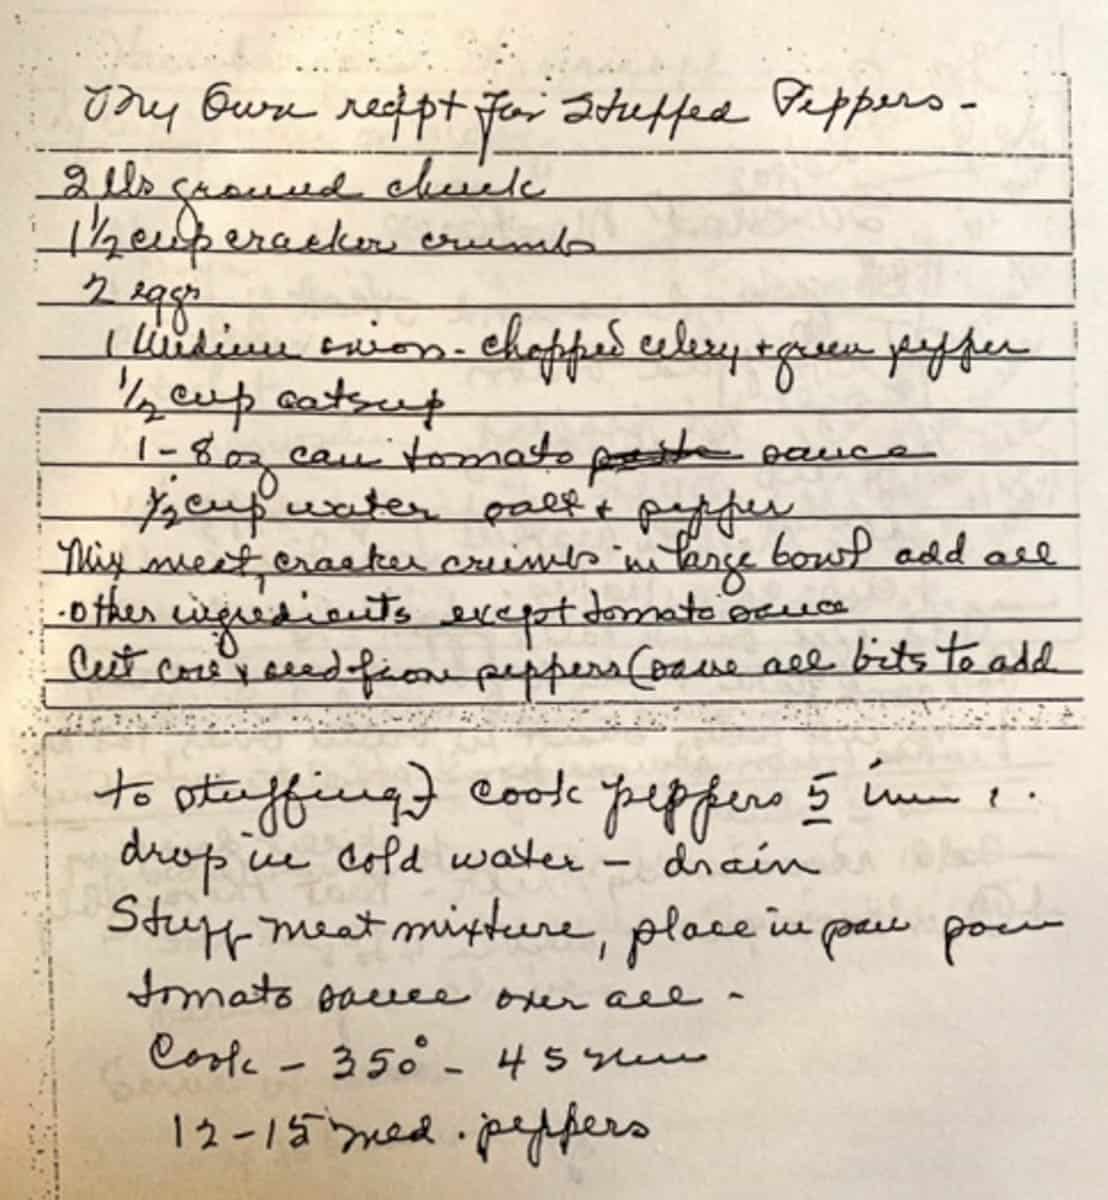 My Own recipt for Stuffed Peppers -
2 lbs ground chuck
1 1/2 cup cracker crumbs
2 eggs
1 Medium onion - chopped celery + green pepper
1/2 cup catsup
1 - 8 oz can tomato ~~paste~~ sauce
1/2 cup water salt + pepper
Mix meat, cracker crumbs in large bowl add all
other ingredients except tomato sauce
Cut core & seed from peppers (save all bits to add
to stuffing) cook peppers 5 min.
drop in cold water - drain
Stuff meat mixture, place in pan pour
tomato sauce over all -
Cook - 350° - 45 min
12-15 med. peppers